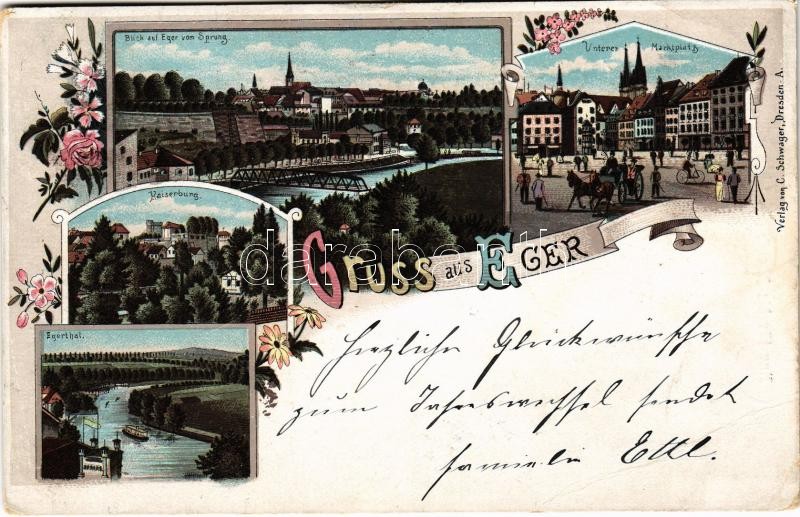 Blick auf Eger vom Sprung.
Unterer Marktplatz
Kaiserburg.
Gruss aus Eger
Egerthal.
Verlag von C. Schwager, Dresden-A.
darabanth
Herzliche Glückwünsche
zum Jahreswechsel sendet
Familie Ettl.